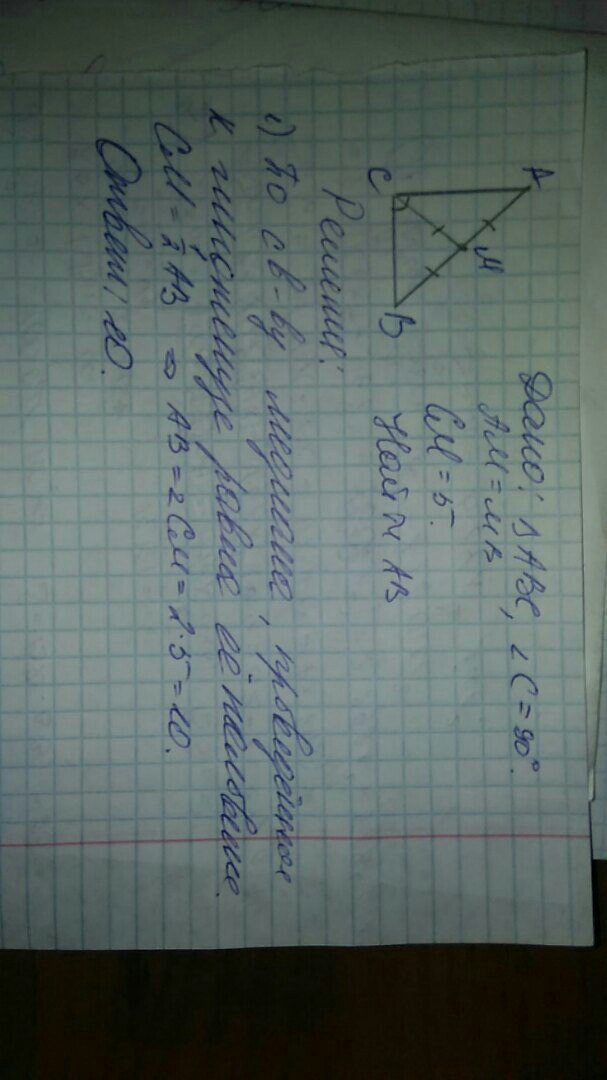 A
M
C
B
Дано: ΔABC, ∠C = 90°.
AM = MB
CM = 5.
Найти AB
Решение:
1) По св-ву медиана, проведённая
к гипотенузе равна её половине.
CM = 1/2 AB ⇒ AB = 2CM = 2·5 = 10.
Ответ: 10.